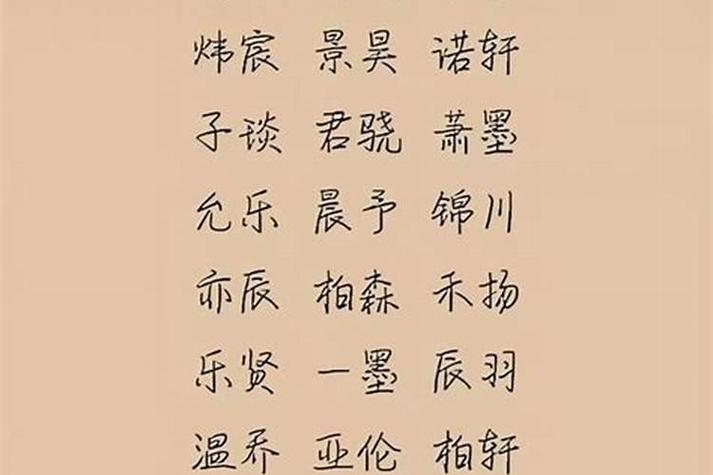 炜宸 景昊 诺轩
子琰 君骁 萧墨
允乐 晨予 锦川
亦辰 柏森 禾扬
乐贤 一墨 辰羽
温乔 亚伦 柏轩